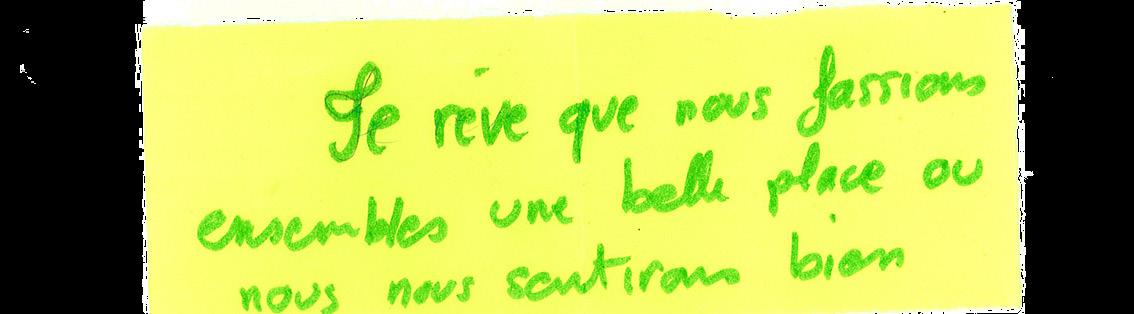 Je rêve que nous fassions
ensembles une belle place ou
nous nous sentirons bien